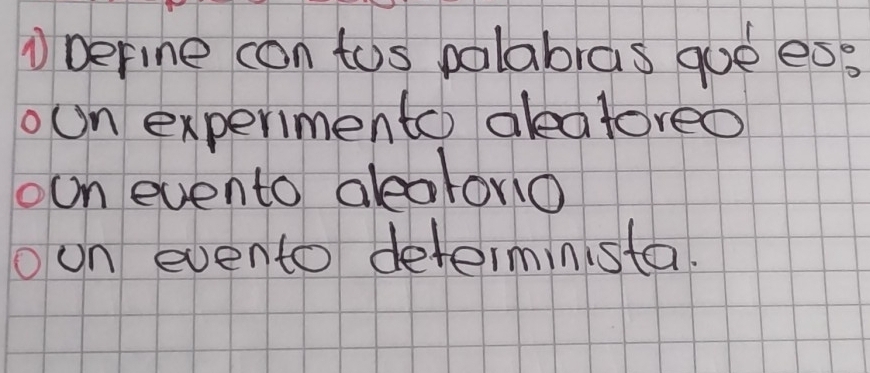 1) Define con tus palabras qué es:
o Un experimento aleatoreo
o Un evento aleatorio
o Un evento determinista.